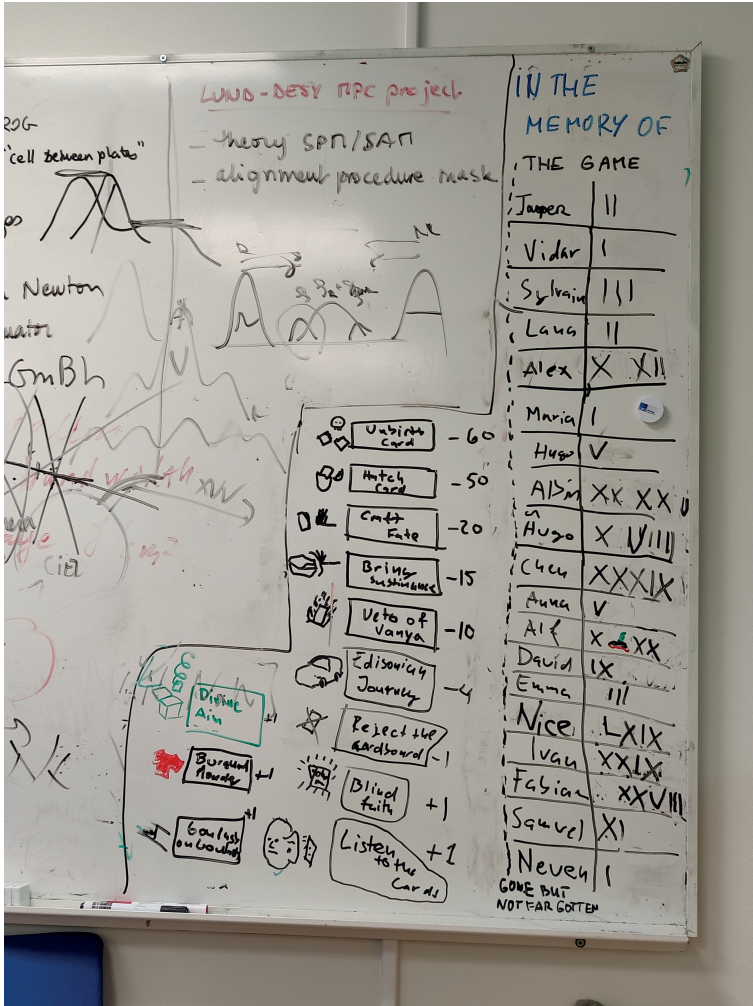 "cell between plates"
Newton
GmBh
LUND-DESY MPC project
– theory SPM/SAM
– alignment procedure mask
Unbirth
Card
-60
Hatch
Card
-50
Craft
Fate
-20
Bring
sustinance
-15
Veto of
Vanya
-10
Edisonian
Journey
-4
Reject the
cardboard
-1
Blind
faith
+1
Listen
to the
Cards
+1
Divine
Aim
+1
+1
+1
IN THE
MEMORY OF
THE GAME
Jasper II
Vidar I
Sylvain III
Lana II
Alex X XII
Maria I
Hugo V
Albin XX XX
Hugo X VIIII
Chen XXXXIX
Anna V
Alf X XX
David IX
Emma III
Nice LXIX
Ivan XXIX
Fabian XXVIII
Samuel XI
Neven I
GONE BUT
NOT FAR GOTTEN